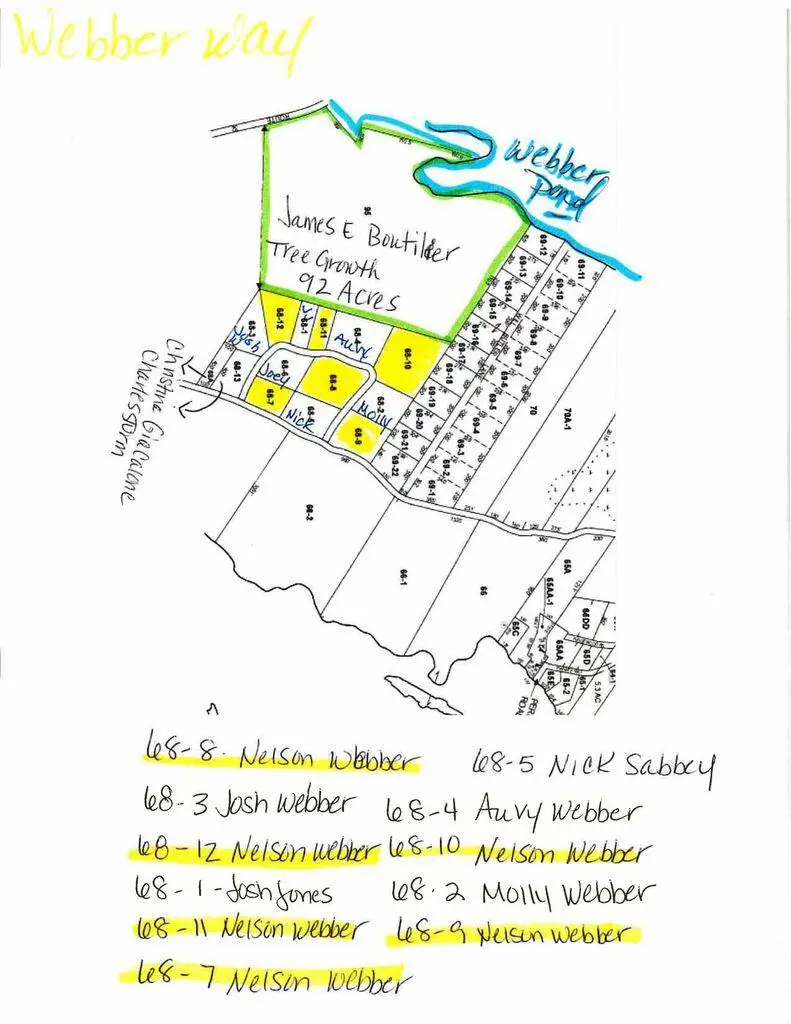 Webber Way
ROUTE 32
Webber
Pond
95
James E Boutilier
Tree Growth
92 Acres
69-12
69-11
69-13
69-10
69-14
69-9
69-15
69-8
69-16
69-7
69-17
69-6
69-18
69-5
69-19
69-4
69-20
69-3
69-21
69-2
69-22
69-1
70
70A-1
68-12
68-1
68-11
68-4
Auvy
68-10
68-3
Josh
W
JJ
68-13
68-6
Joey
68-8
68-2
Molly
68-7
68-5
Nick
68-9
Christine Giacalone
Charles Dorn
68-2
66-1
66
65A
65AA-1
66DD
65C
65AA
65D
65E
65-2
65-1
64-1
5.3 AC
68-8. Nelson Webber
68-5 Nick Sabbey
68-3 Josh Webber
68-4 Auvy Webber
68-12 Nelson Webber
68-10 Nelson Webber
68-1-Josh Jones
68-2 Molly Webber
68-11 Nelson Webber
68-9 Nelson Webber
68-7 Nelson Webber